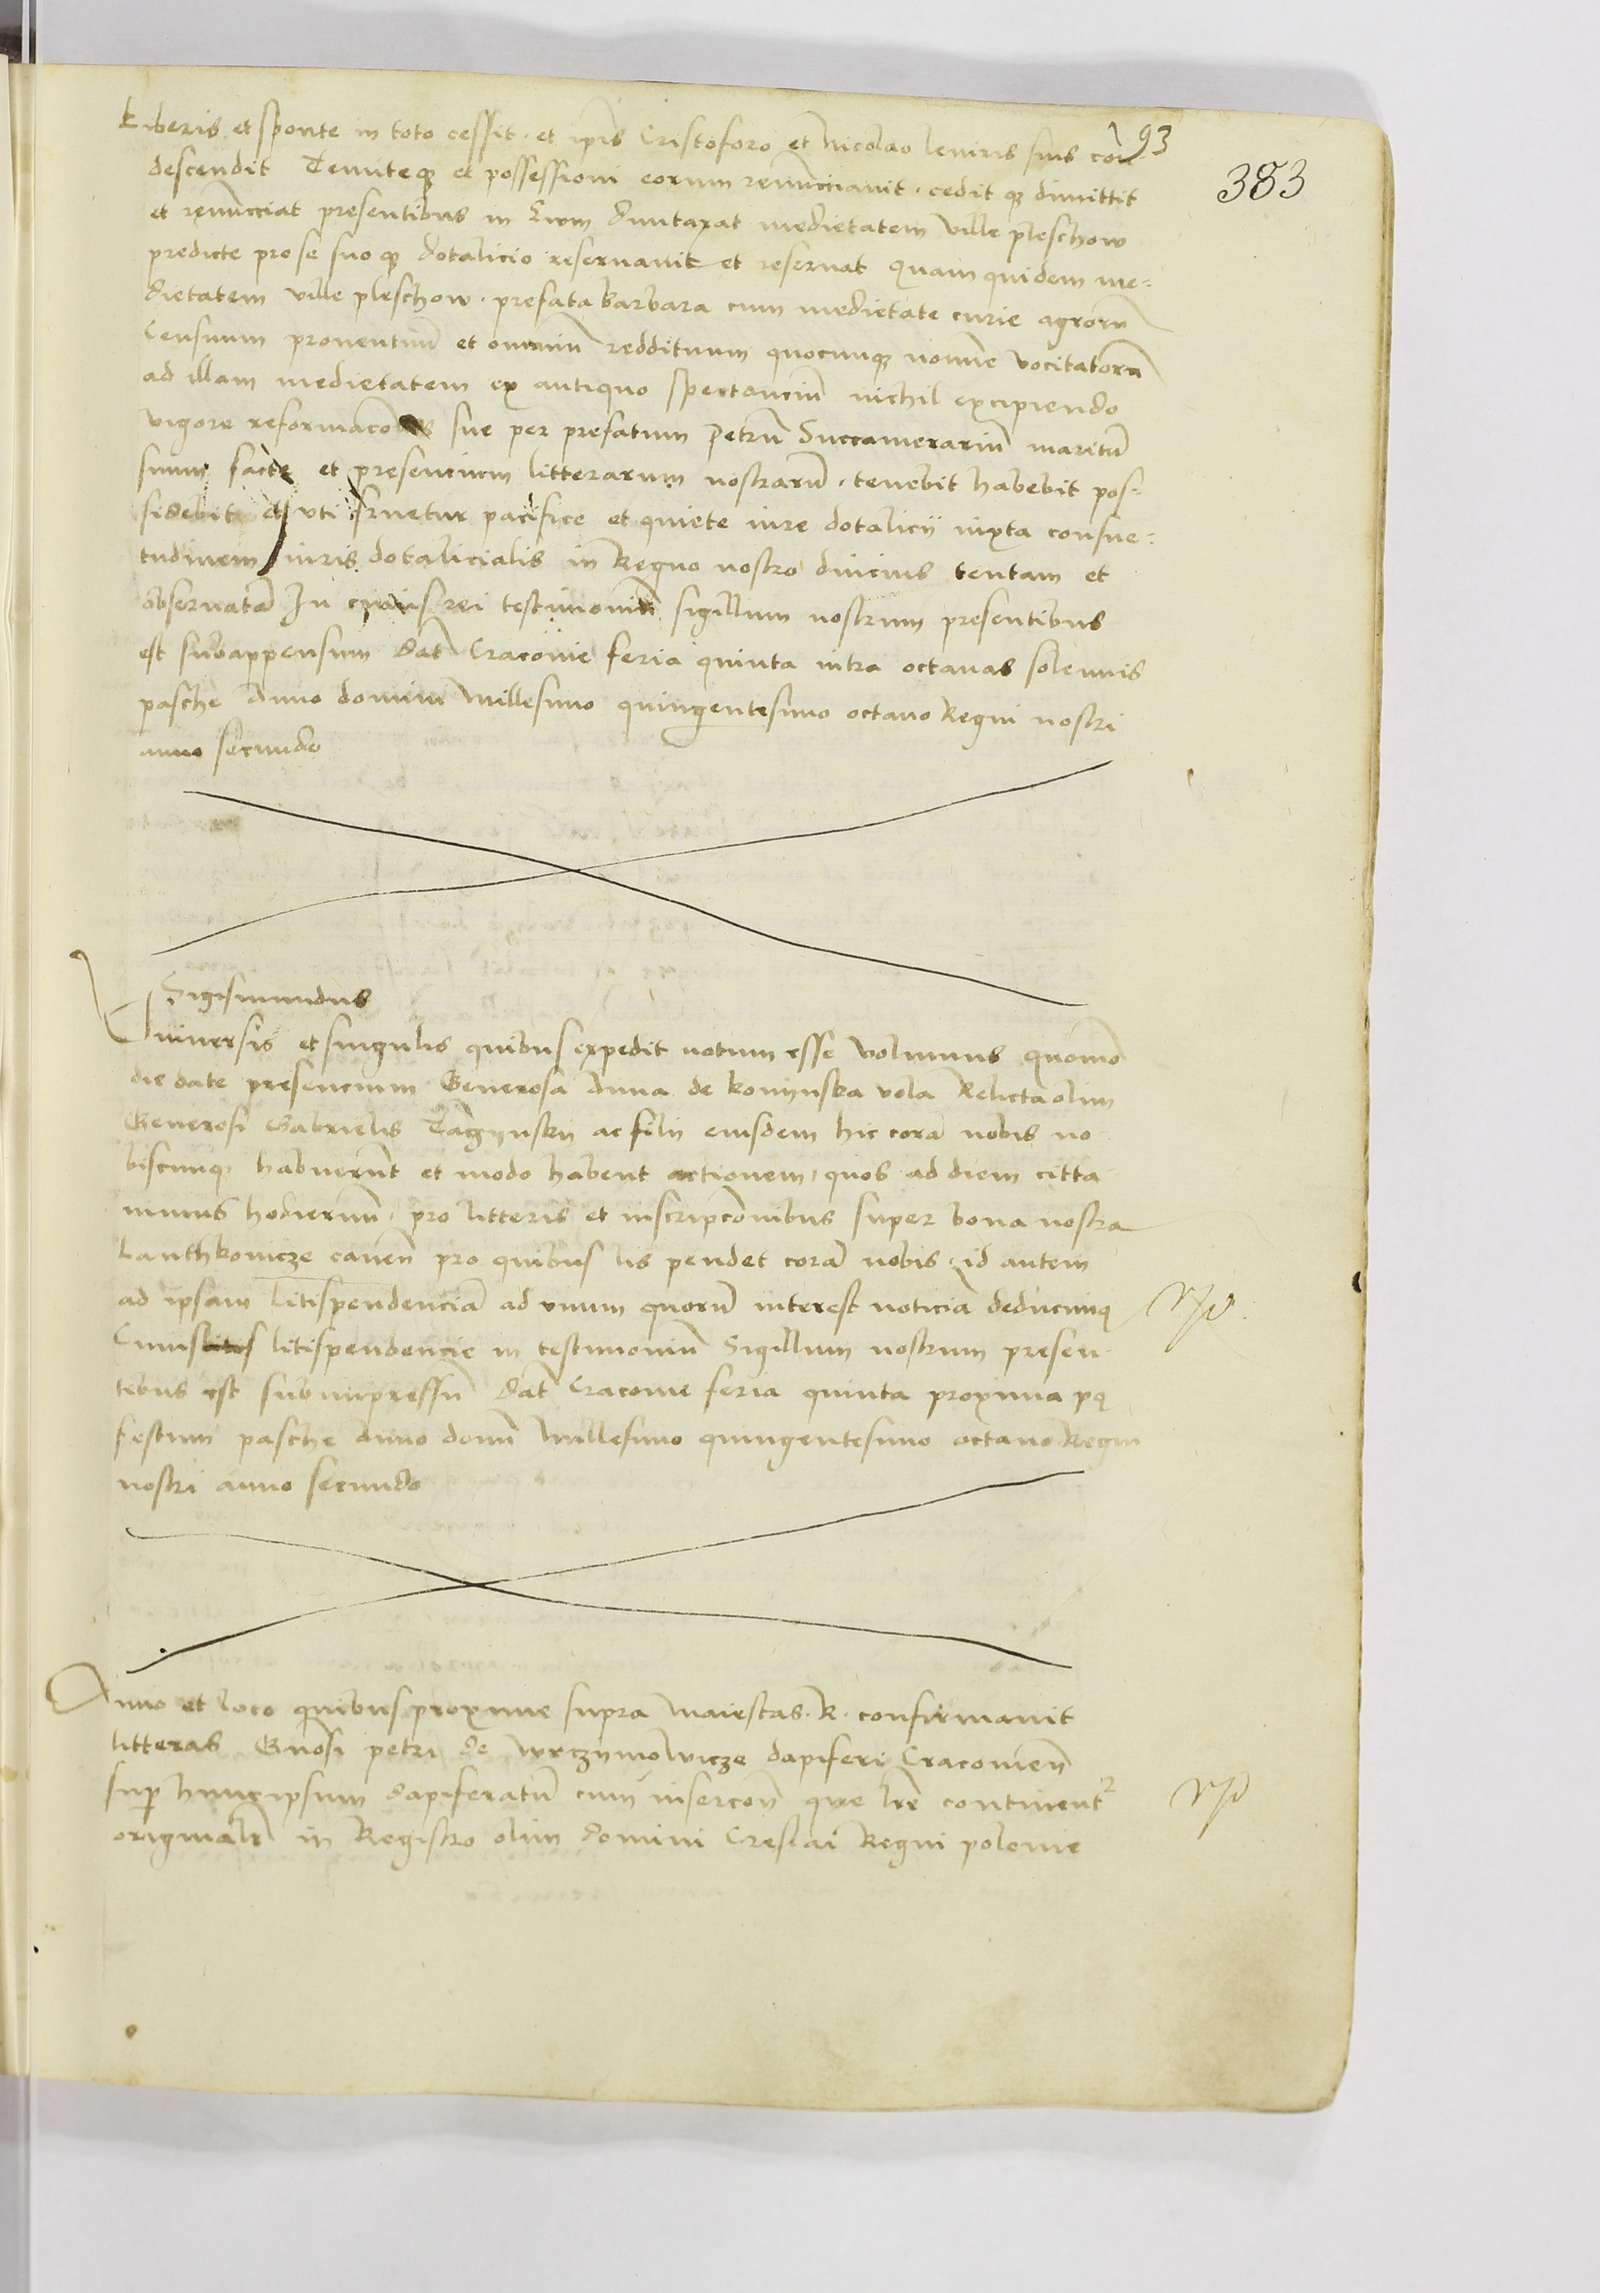 193
383
liberis et sponte in toto cessit. et ipis Cristoforo et Nicolao leviris suis con
descendit Tenuteqz et possessioni eorum renunciavit. cedit qz dimittit
et renuncciat presentibus in Eum duntaxat medietatem ville pleschow
predicte pro se suo qz dotalicio reservavit et reservat Quam quidem me-
dietatem ville pleschow. prefata barbara cum medietate curie agrorum
Censuum proventuu et omniu reddituum quocunqz nomine vocitatoru
ad illam medietatem ex antiquo spectanciu nichil excipiendo
vigore reformaconis sue per prefatum Petru Succamerariu maritu
suum facte et presencium litterarum nostraru. tenebit habebit pos-
sidebit et uti fruetur pacifice et quiete iure dotalicii iuxta consue-
tudinem iuris dotalicialis in Regno nostro divicius tentam et
observata In cuius rei testimoniu sigillum nostrum presentibus
est subappensum Dat Cracovie feria quinta intra octavas solennis
pasche Anno domini Millesimo quingentesimo octavo Regni nostri
anno secundo
Sigismundus
Universis et singulis quibus expedit notum esse volumus quomo
die date presencium Generosa Anna de konynska vola Relicta olim
Generosi Gabrielis Taczynsky ac filii eiusdem hic cora nobis no
biscunqz habuerunt et modo habent actionem, quos ad diem citta
vimus hodiernu. pro litteris et inscripconibus super bona nostra
Lanthkovicze caven pro quibus lis pendet cora nobis. id autem
ad ipsam litispendencia ad unum quoru interest noticia deducimq
Cuius litispendencie in testimoniu Sigillum nostrum presen-
tibus est subimpressu Dat Cracovie feria quinta proxima pq
festum pasche Anno domi Millesimo quingentesimo octavo Regni
nostri anno secundo
Anno et loco quibus proxime supra Maiestas. R. confirmavit
litteras Gnosi petri de wrczymowicze dapiferi Cracovien
sup hunc ipsum dapiferatu cum insercon que lre continent
originalr in Registro olim domini Creslai Regni polonie